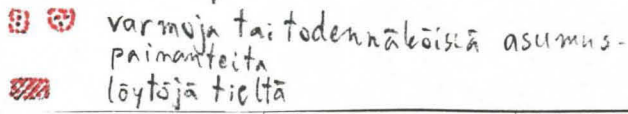 varmoja tai todennäköisiä asumus-
painanteita
löytöjä tieltä